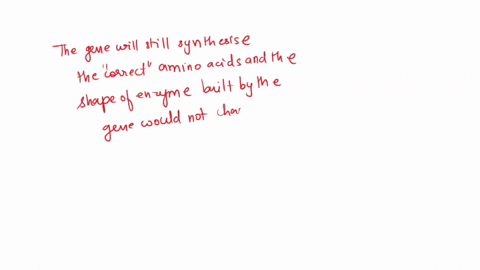 The gene will still synthesise
the "correct" amino acids and the
shape of enzyme built by the
gene would not cha